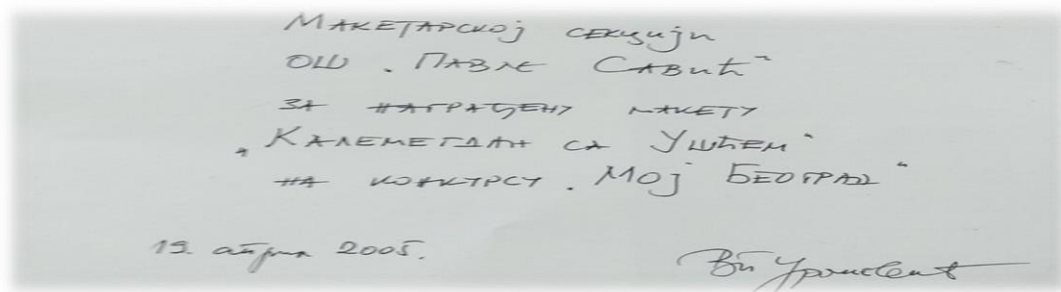 Макетарској секцији
ОШ "Павле Савић"
за награђену макету
"Калемегдан са Ушћем"
на конкурсу "Мој Београд"
19. априла 2005.